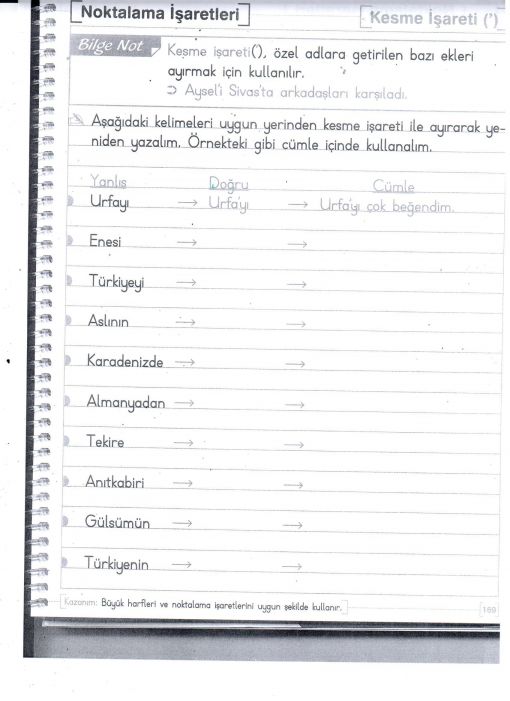 Noktalama İşaretleri
Kesme İşareti (')
Bilge Not
Kesme işareti('), özel adlara getirilen bazı ekleri
ayırmak için kullanılır.
⊃ Aysel'i Sivas'ta arkadaşları karşıladı.
Aşağıdaki kelimeleri uygun yerinden kesme işareti ile ayırarak ye-
niden yazalım. Örnekteki gibi cümle içinde kullanalım.
Yanlış Doğru Cümle
Urfayı → Urfa'yı → Urfa'yı çok beğendim.
Enesi → →
Türkiyeyi → →
Aslının → →
Karadenizde → →
Almanyadan → →
Tekire → →
Anıtkabiri → →
Gülsümün → →
Türkiyenin → →
Kazanım: Büyük harfleri ve noktalama işaretlerini uygun şekilde kullanır.
169